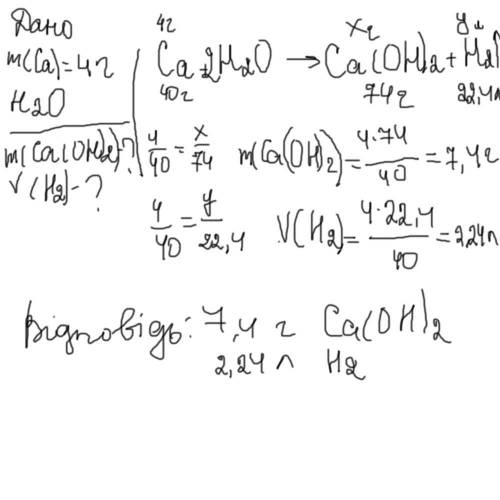 Дано
m(Ca)=4г
H2O
m(Ca(OH)2)-?
V(H2)-?
4г xг yл
Ca+2H2O → Ca(OH)2+H2↑
40г 74г 22,4л
4/40 = x/74 m(Ca(OH)2) = 4·74/40 = 7,4г
4/40 = y/22,4 V(H2) = 4·22,4/40 = 2,24л
Відповідь: 7,4 г Ca(OH)2
2,24 л H2